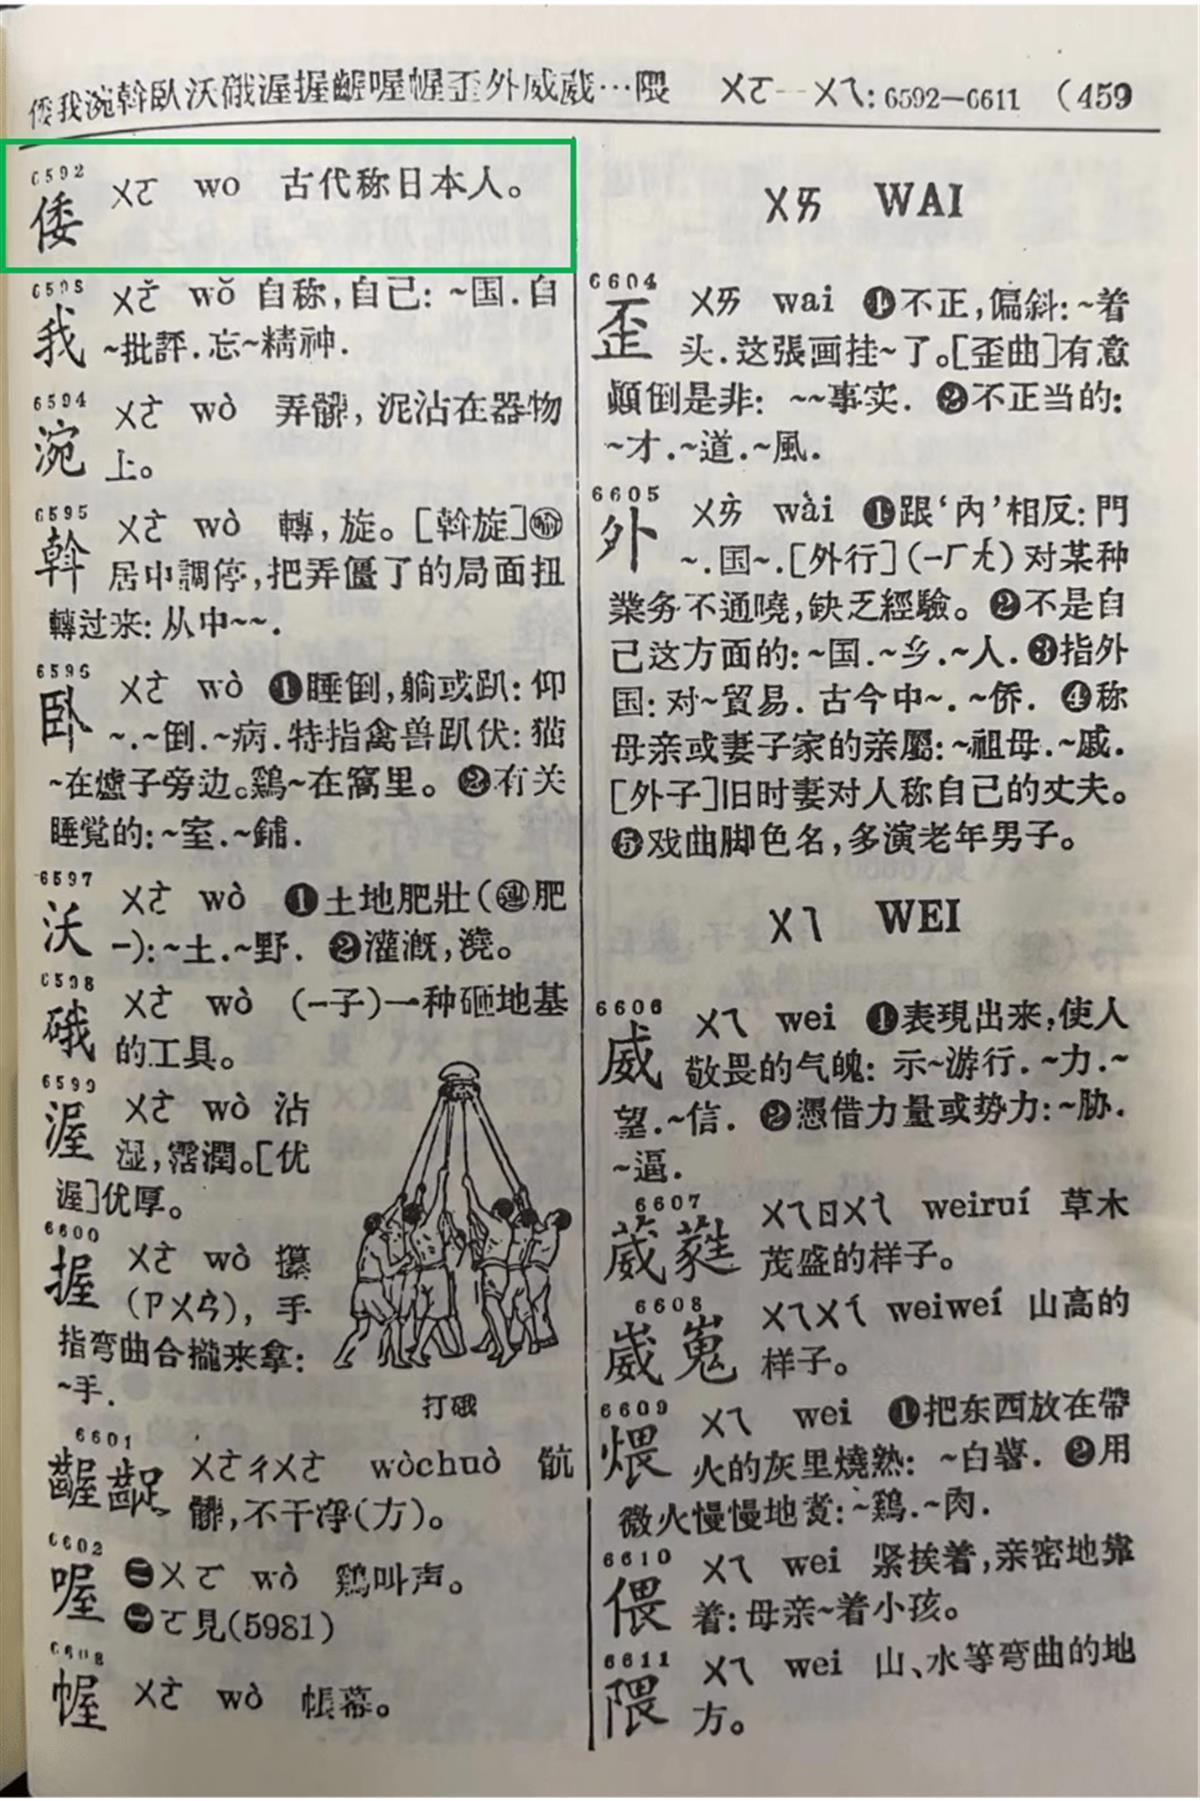 倭我涴斡臥沃硪渥握齷喔幄歪外威葳…隈 ㄨㄛ—ㄨㄟ: 6592—6611 (459
6592
倭 ㄨㄛ wo 古代称日本人。
6593
我 ㄨㄛˇ wǒ 自称,自己: ~国.自
~批評.忘~精神.
6594
涴 ㄨㄛˋ wò 弄髒, 泥沾在器物
上。
6595
斡 ㄨㄛˋ wò 轉, 旋。[斡旋]㊉
居中調停,把弄僵了的局面扭
轉过来: 从中~~.
6596
卧 ㄨㄛˋ wò ❶睡倒,躺或趴: 仰
~.~倒.~病.特指禽兽趴伏: 猫
~在爐子旁边。鷄~在窩里。 ❷有关
睡觉的: ~室.~鋪.
6597
沃 ㄨㄛˋ wò ❶土地肥壯(連肥
—): ~土.~野. ❷灌漑,澆。
6598
硪 ㄨㄛˋ wò (—子)一种砸地基
的工具。
6599
渥 ㄨㄛˋ wò 沾
湿,霑潤。[优
渥]优厚。
6600
握 ㄨㄛˋ wò 攥
(ㄗㄨㄢˋ), 手
指弯曲合攏来拿:
~手.
打硪
6601
齷齪 ㄨㄛˋㄔㄨㄛˋ wòchuò 骯
髒,不干净(方)。
6602
喔 ㊀ㄨㄛ wò 鷄叫声。
㊁ㄛ見(5981)
6603
幄 ㄨㄛˋ wò 帳幕。
ㄨㄞ WAI
6604
歪 ㄨㄞ wai ❶不正,偏斜: ~着
头.这張画挂~了。[歪曲]有意
顚倒是非: ~~事实. ❷不正当的:
~才.~道.~風.
6605
外 ㄨㄞˋ wài ❶跟‘內’相反: 門
~.国~.[外行](—ㄏㄤˊ)对某种
業务不通曉,缺乏經驗。 ❷不是自
己这方面的: ~国.~乡.~人. ❸指外
国: 对~貿易. 古今中~.~侨. ❹称
母亲或妻子家的亲屬: ~祖母.~戚.
[外子]旧时妻对人称自己的丈夫。
❺戏曲脚色名,多演老年男子。
ㄨㄟ WEI
6606
威 ㄨㄟ wei ❶表現出来,使人
敬畏的气魄: 示~游行.~力.~
望.~信. ❷憑借力量或势力: ~胁.
~逼.
6607
葳蕤 ㄨㄟㄖㄨㄟˊ weiruí 草木
茂盛的样子。
6608
崴嵬 ㄨㄟㄨㄟˊ weiweí 山高的
样子。
6609
煨 ㄨㄟ wei ❶把东西放在帶
火的灰里燒熟: ~白薯. ❷用
微火慢慢地煑: ~鷄.~肉.
6610
偎 ㄨㄟ wei 紧挨着,亲密地靠
着: 母亲~着小孩。
6611
隈 ㄨㄟ wei 山、水等弯曲的地
方。